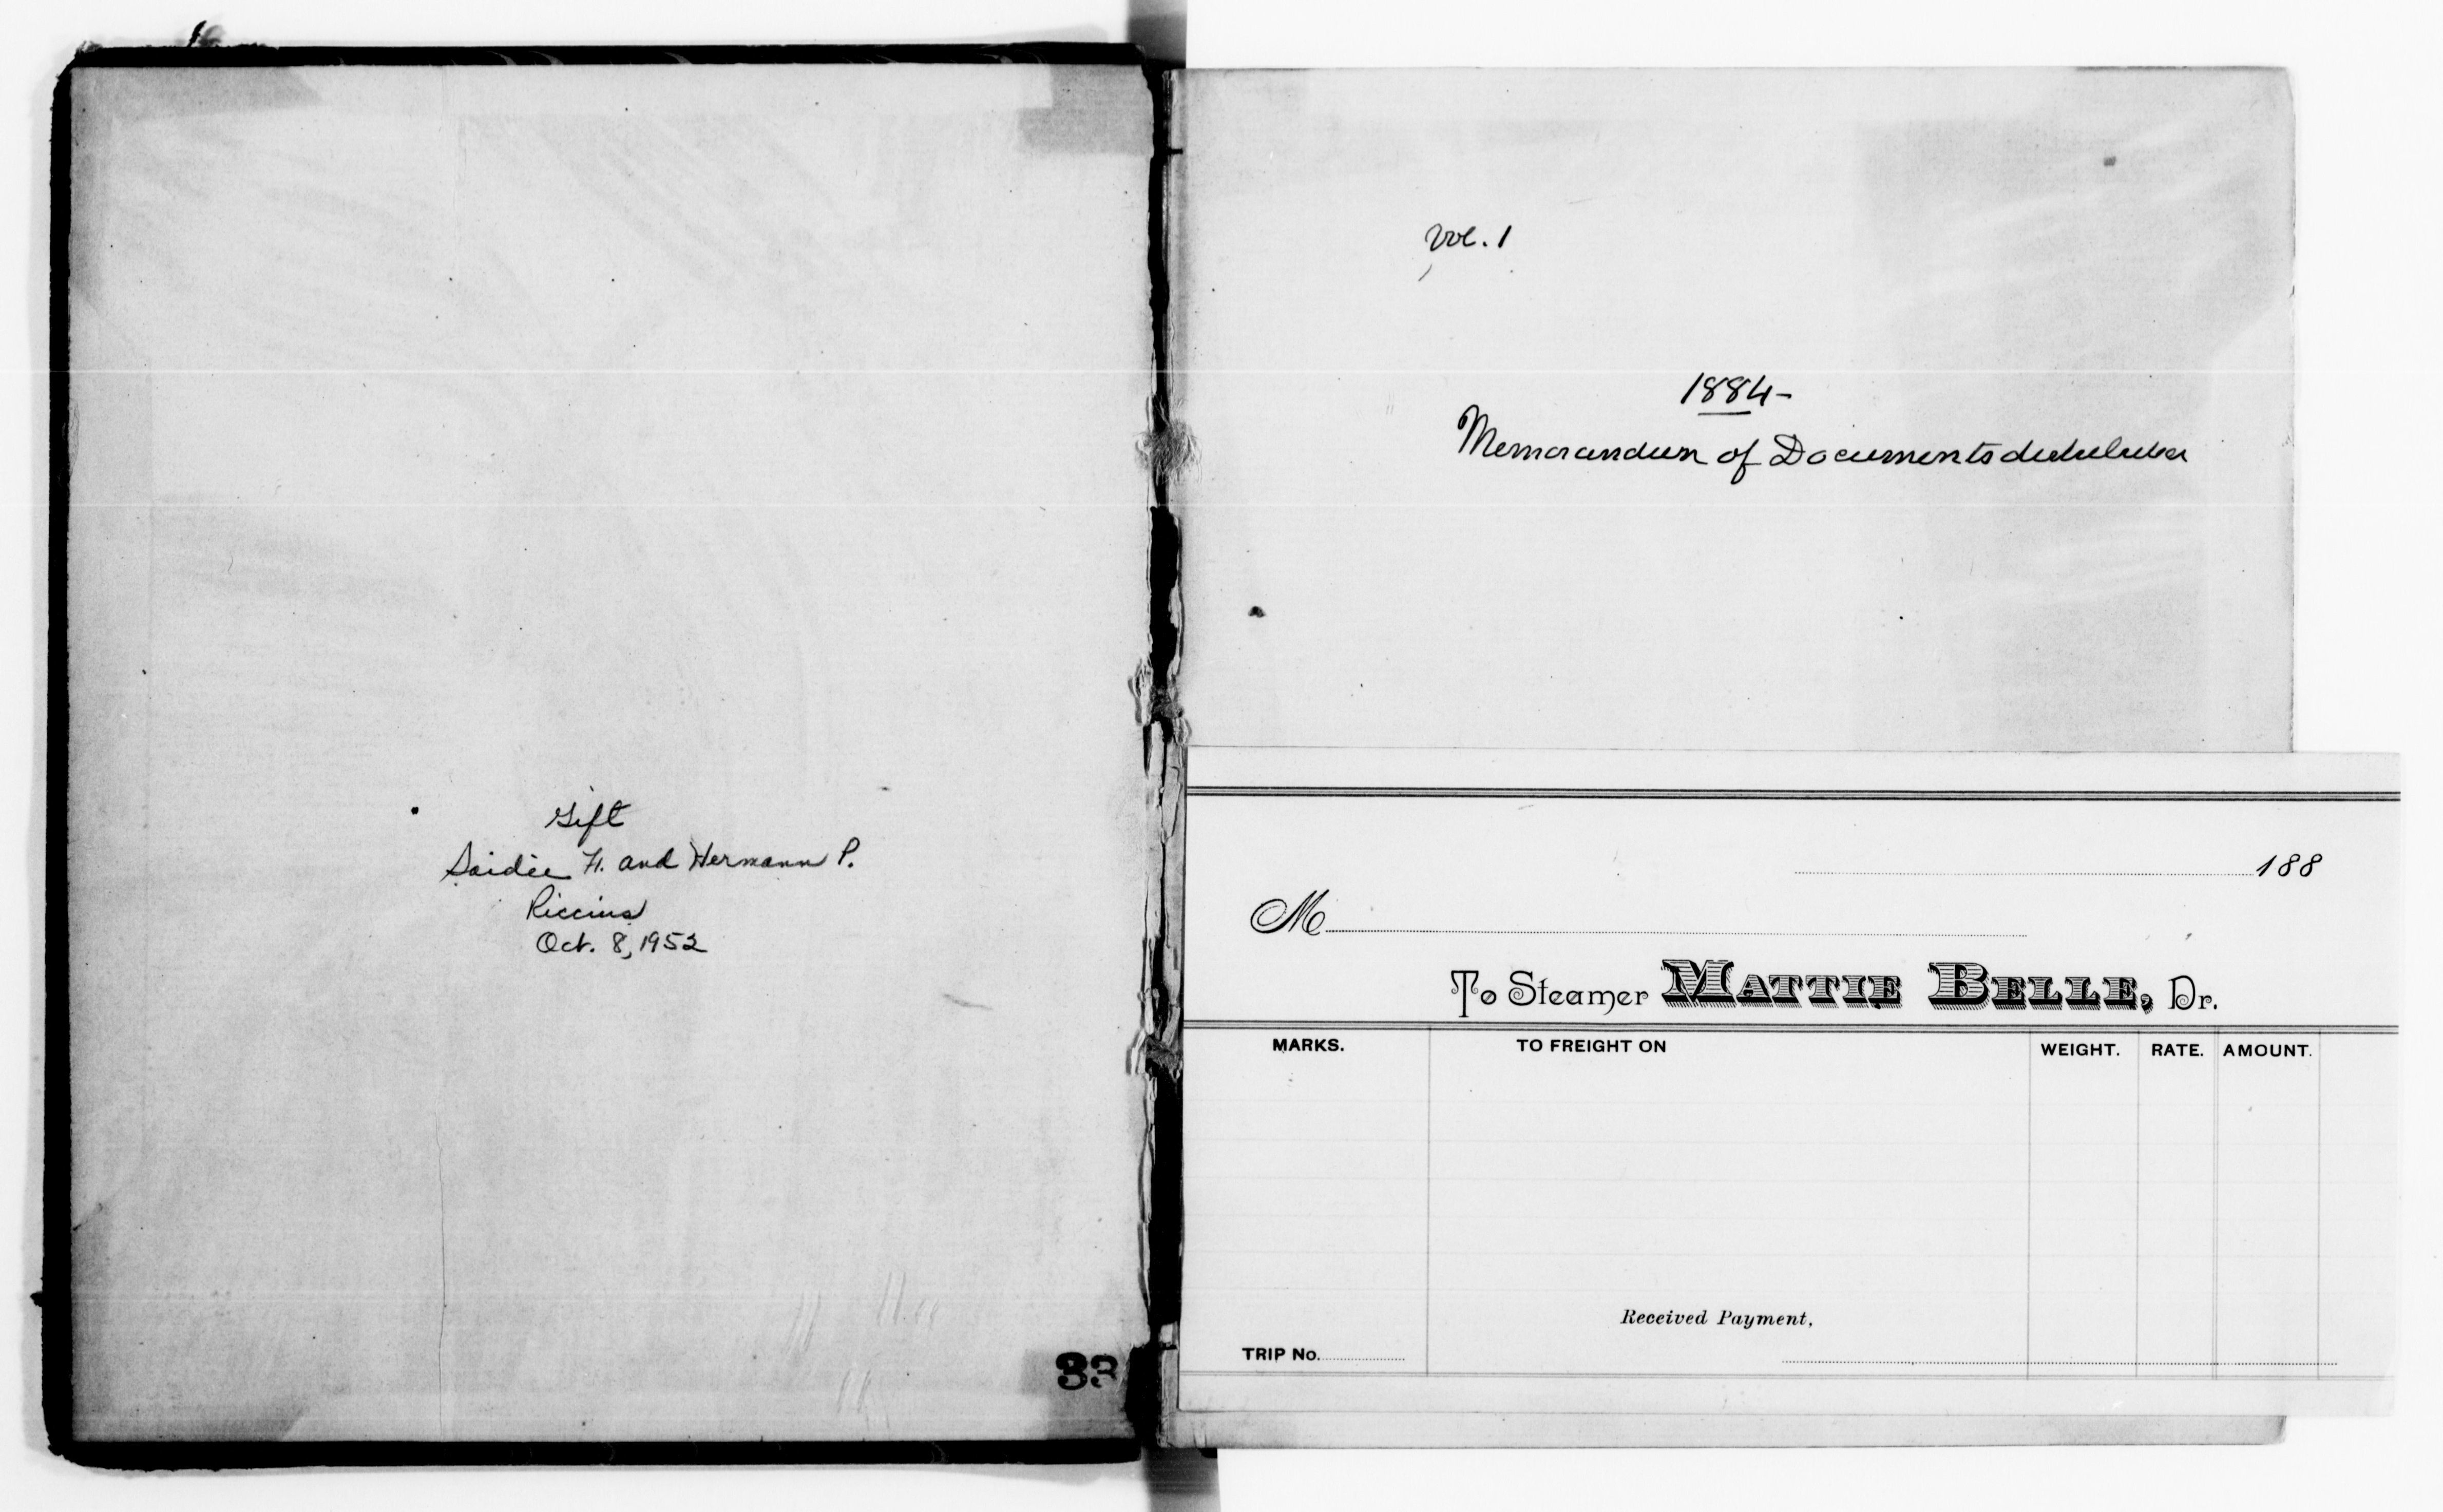 Gift
Saidie H. and Hermann P.
Riccius
Oct. 8, 1952
33
Vol. 1
1884-
Memorandum of Documents
188
M
To Steamer MATTIE BELLE, Dr.
MARKS. TO FREIGHT ON WEIGHT. RATE. AMOUNT.
Received Payment,
TRIP No.